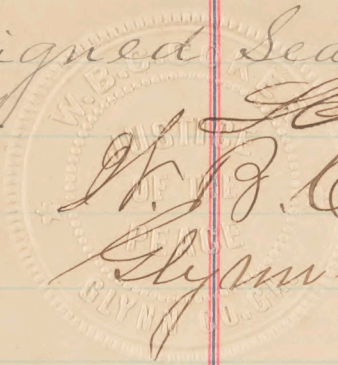 igned Sea
W. B.
Glynn
W. B.
JUSTICE
OF THE
PEACE
GLYNN CO. GA.